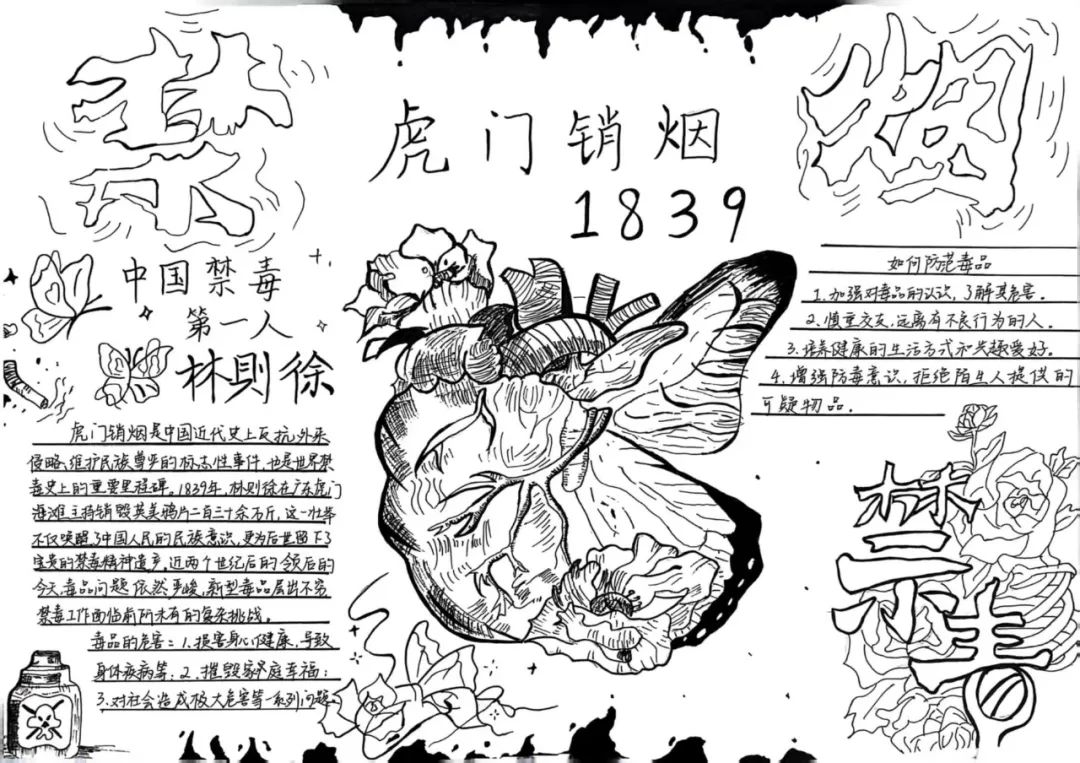 禁
烟
虎门销烟
1839
中国禁毒
第一人
林则徐
虎门销烟是中国近代史上反抗外来
侵略、维护民族尊严的标志性事件,也是世界禁
毒史上的重要里程碑。1839年,林则徐在广东虎门
海滩主持销毁英美鸦片二百三十余万斤,这一壮举
不仅唤醒了中国人民的民族意识,更为后世留下了
宝贵的禁毒精神遗产。近两个世纪后的
今天,毒品问题依然严峻,新型毒品层出不穷
禁毒工作面临前所未有的复杂挑战。
毒品的危害:1.损害身心健康,导致
身体疾病等;2.摧毁家庭幸福;
3.对社会造成极大危害等一系列问题
如何防范毒品
1.加强对毒品的认识,了解其危害。
2.慎重交友,远离有不良行为的人。
3.培养健康的生活方式和兴趣爱好。
4.增强防毒意识,拒绝陌生人提供的
可疑物品。
禁毒